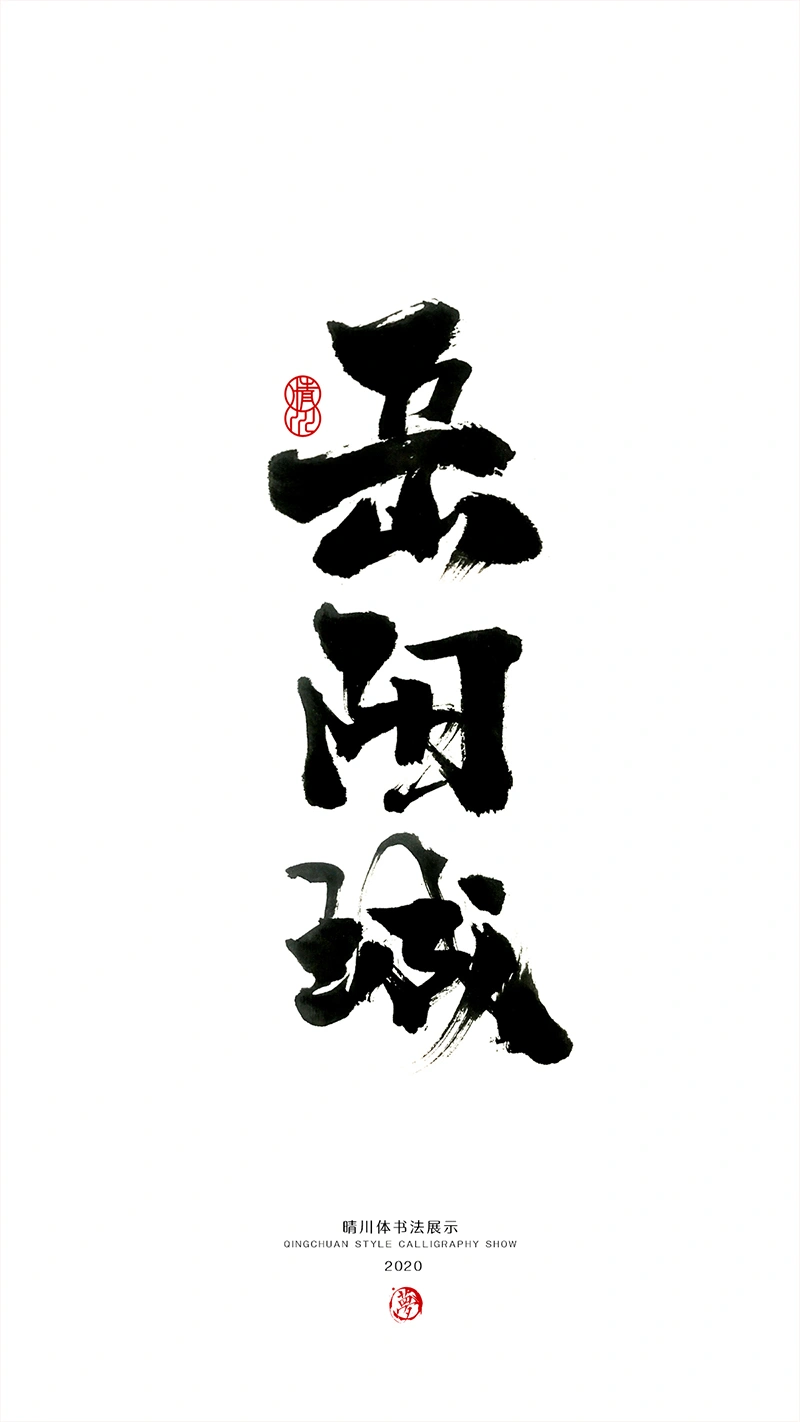 岳阳城
晴川
晴川体书法展示
QINGCHUAN STYLE CALLIGRAPHY SHOW
2020
夢